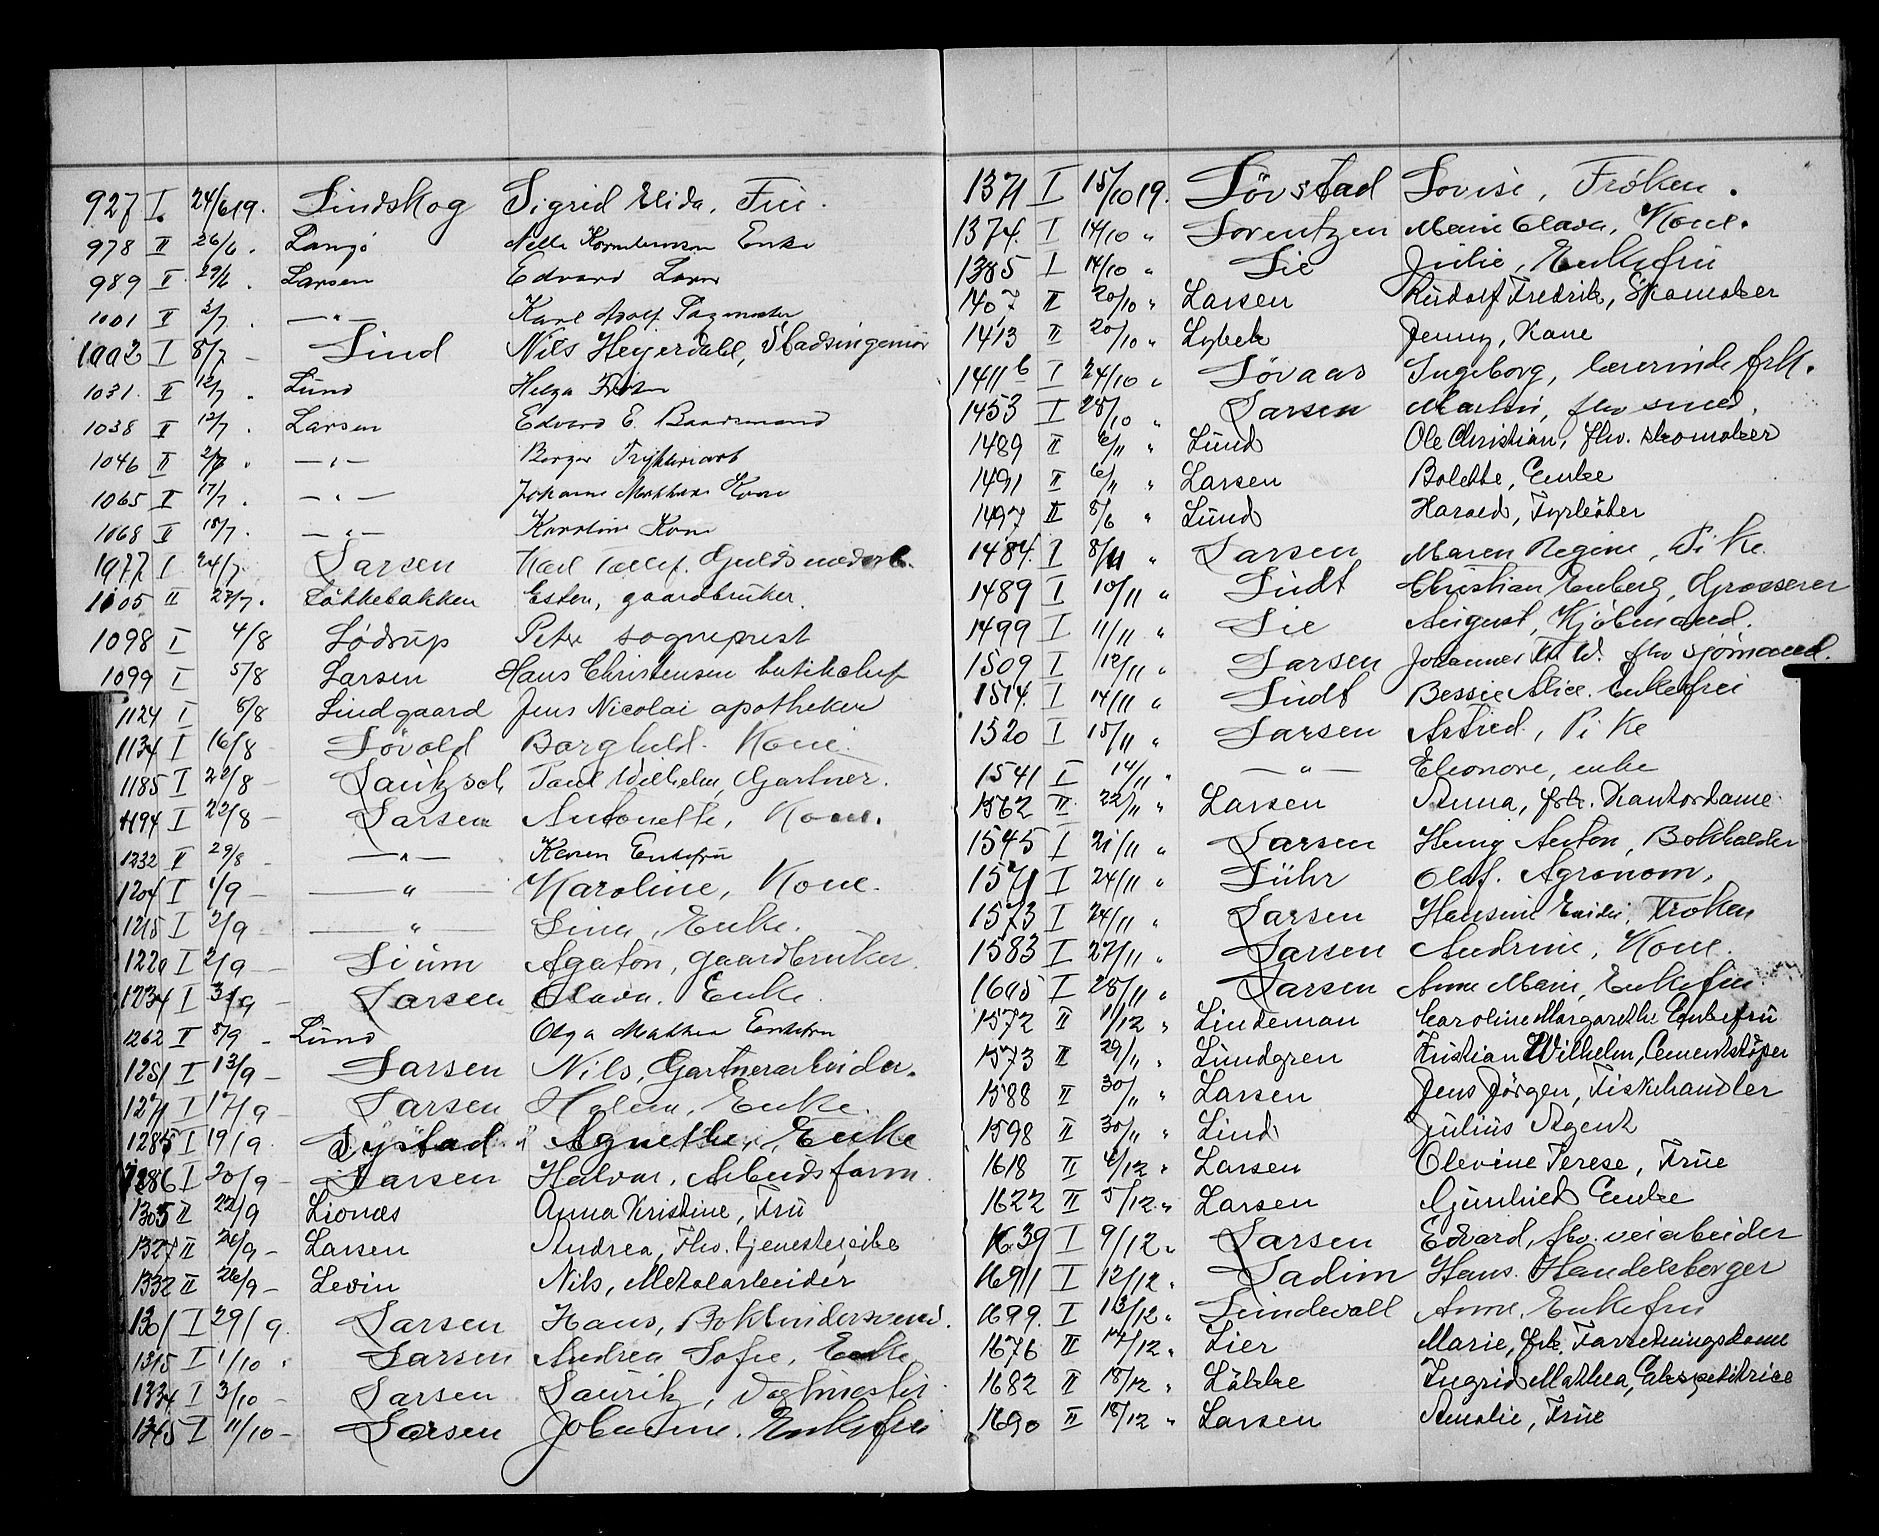 927 I. 24/6 19. Lindskog Sigrid Elida, Frue.
978 II 26/6. Langø Nelle Enke
989 II 29/6. Larsen Edvard
1001 II 3/7. —"— Karl Adolf Pagmester
1002 I 8/7 – Lind Nils Heyerdahl, Stadsingeniør
1031. II 12/7. Lund Helga Frøken
1038 II 12/7. Larsen Edvard E. Baadsmand
1046 II 2/7. —"— Borger
1065 II 17/7. —"— Johanne Mathea Kone
1068 II 18/7. —"— Karoline Kone
1077 I 24/7. Larsen Karl Guldsmedarb.
1105 II 27/7. Løkkebakken Esten, gaardbruker.
1098 I 4/8 Lødrup Peter sogneprest
1099 I 5/8 Larsen Hans Christensen butikchef
1124 I 8/8 Lindgaard Jens Nicolai apotheker
1134 I 16/8 Løvold Borghild. Kone.
1185 I 22/8 – Lautzsch Paul Wilhelm, Gartner.
1194 I 22/8 – Larsen Antonette, Kone.
1232 II 29/8 – —"— Karen Enkefru
1204 I 1/9 – —"— Karoline, Kone.
1215 I 2/9 – —"— Lina, Enke.
1220 I 2/9 – Lium Agaton, gaardbruker.
1234 I 3/9 – Larsen Olava. Enke.
1262 II 8/9 – Lund Olga Mathea Enkefru
1251 I 13/9 – Larsen Nils, Gartnerarbeider.
1271 I 17/9 – Larsen Helene, Enke.
1285 I 19/9. Lystad Agnethe, Enke
1286 I 20/9 – Larsen Halvar, Arbeidsform.
1305 II 22/9 Lionæs Anna Kristine, Fru
1327 II 26/9 – Larsen Andrea, Fhv. tjenestepike
1332 II 26/9 – Levin Nils, Metalarbeider
1361 I 29/9. Larsen Hans, Bokbindersvend.
1315 I 1/10. Larsen Andrea Sofie, Enke
1334 I 3/10 – Larsen Laurits, Vogtmester
1345 I 11/10 – Larsen Johanne. Enkefru
1371 I 15/10 19. Løvstad Lovise, Frøken.
1374. I 14/10 " Lorentzen Marie Olava, Kone.
1385 I 14/10 " Lie Julie, Enkefru
1407 II 20/10 " Larsen Rudolf Fredrik, Skomaker
1413 II 20/10 " Lybek Jenny, Kone
1411b I 24/10 " Løvaas Ingeborg, lærerinde frk.
1453 I 28/10 " Larsen Martin, fhv smed.
1489 II 6/11 " Lund Ole Christian, fhv. skomaker
1491 II 6/11 " Larsen Bolette, Enke
1497 II 8/6 " Lund Harald, Fyrbøter
1484. I 8/11 " Larsen Maren Regine, Pike.
1489 I 10/11 " Lindt Christian Enberg, Grosserer
1499 I 11/11 " Lie August, Kjøbmand.
1509 I 12/11 " Larsen Johannes M. W. fhv sjømand.
1514. I 14/11 " Lindt Bessie Alice. Enkefrue
1520 I 15/11 " Larsen Astrid, Pike
1541 I 14/11 " —"— Eleonore, enke
1562 II 22/11 " Larsen Anna, frk. Kontordame
1545 I 21/11 " Larsen Henry Anton, Bokholder
1571 I 24/11 " Lühr Olaf. Agronom,
1573 I 24/11 " Larsen Hansine Frøken
1583 I 27/11 " Larsen Andrine, Kone.
1605 I 28/11 " Larsen Anne Marie, Enkefru
1572 II 1/12 " Lindeman Caroline Margarethe Enkefrü
1573 II 29/11 " Lundgren Kristian Wilhelm, Cementstøper
1588 II 30/11 " Larsen Jens Jørgen, Fiskehandler
1598 II 30/11 " Lind Julius Agent
1618 II 4/12 " Larsen Olevine Terese, Frue
1622 II 5/12 " Larsen Gunhild Enke
1639 I 9/12 " Larsen Edvard, fhv. veiabeider
1691 I 12/12 " Ladim Hans. Handelsborger
1699. I 13/12 " Lundevall Anne, Enkefru
1676 II 17/12 " Lier Marie, frk. Forretningsdame
1682 II 18/12 " Løkke Ingrid Mathea, Ekspeditrice
1690 II 18/12 " Larsen Amalie, Frue